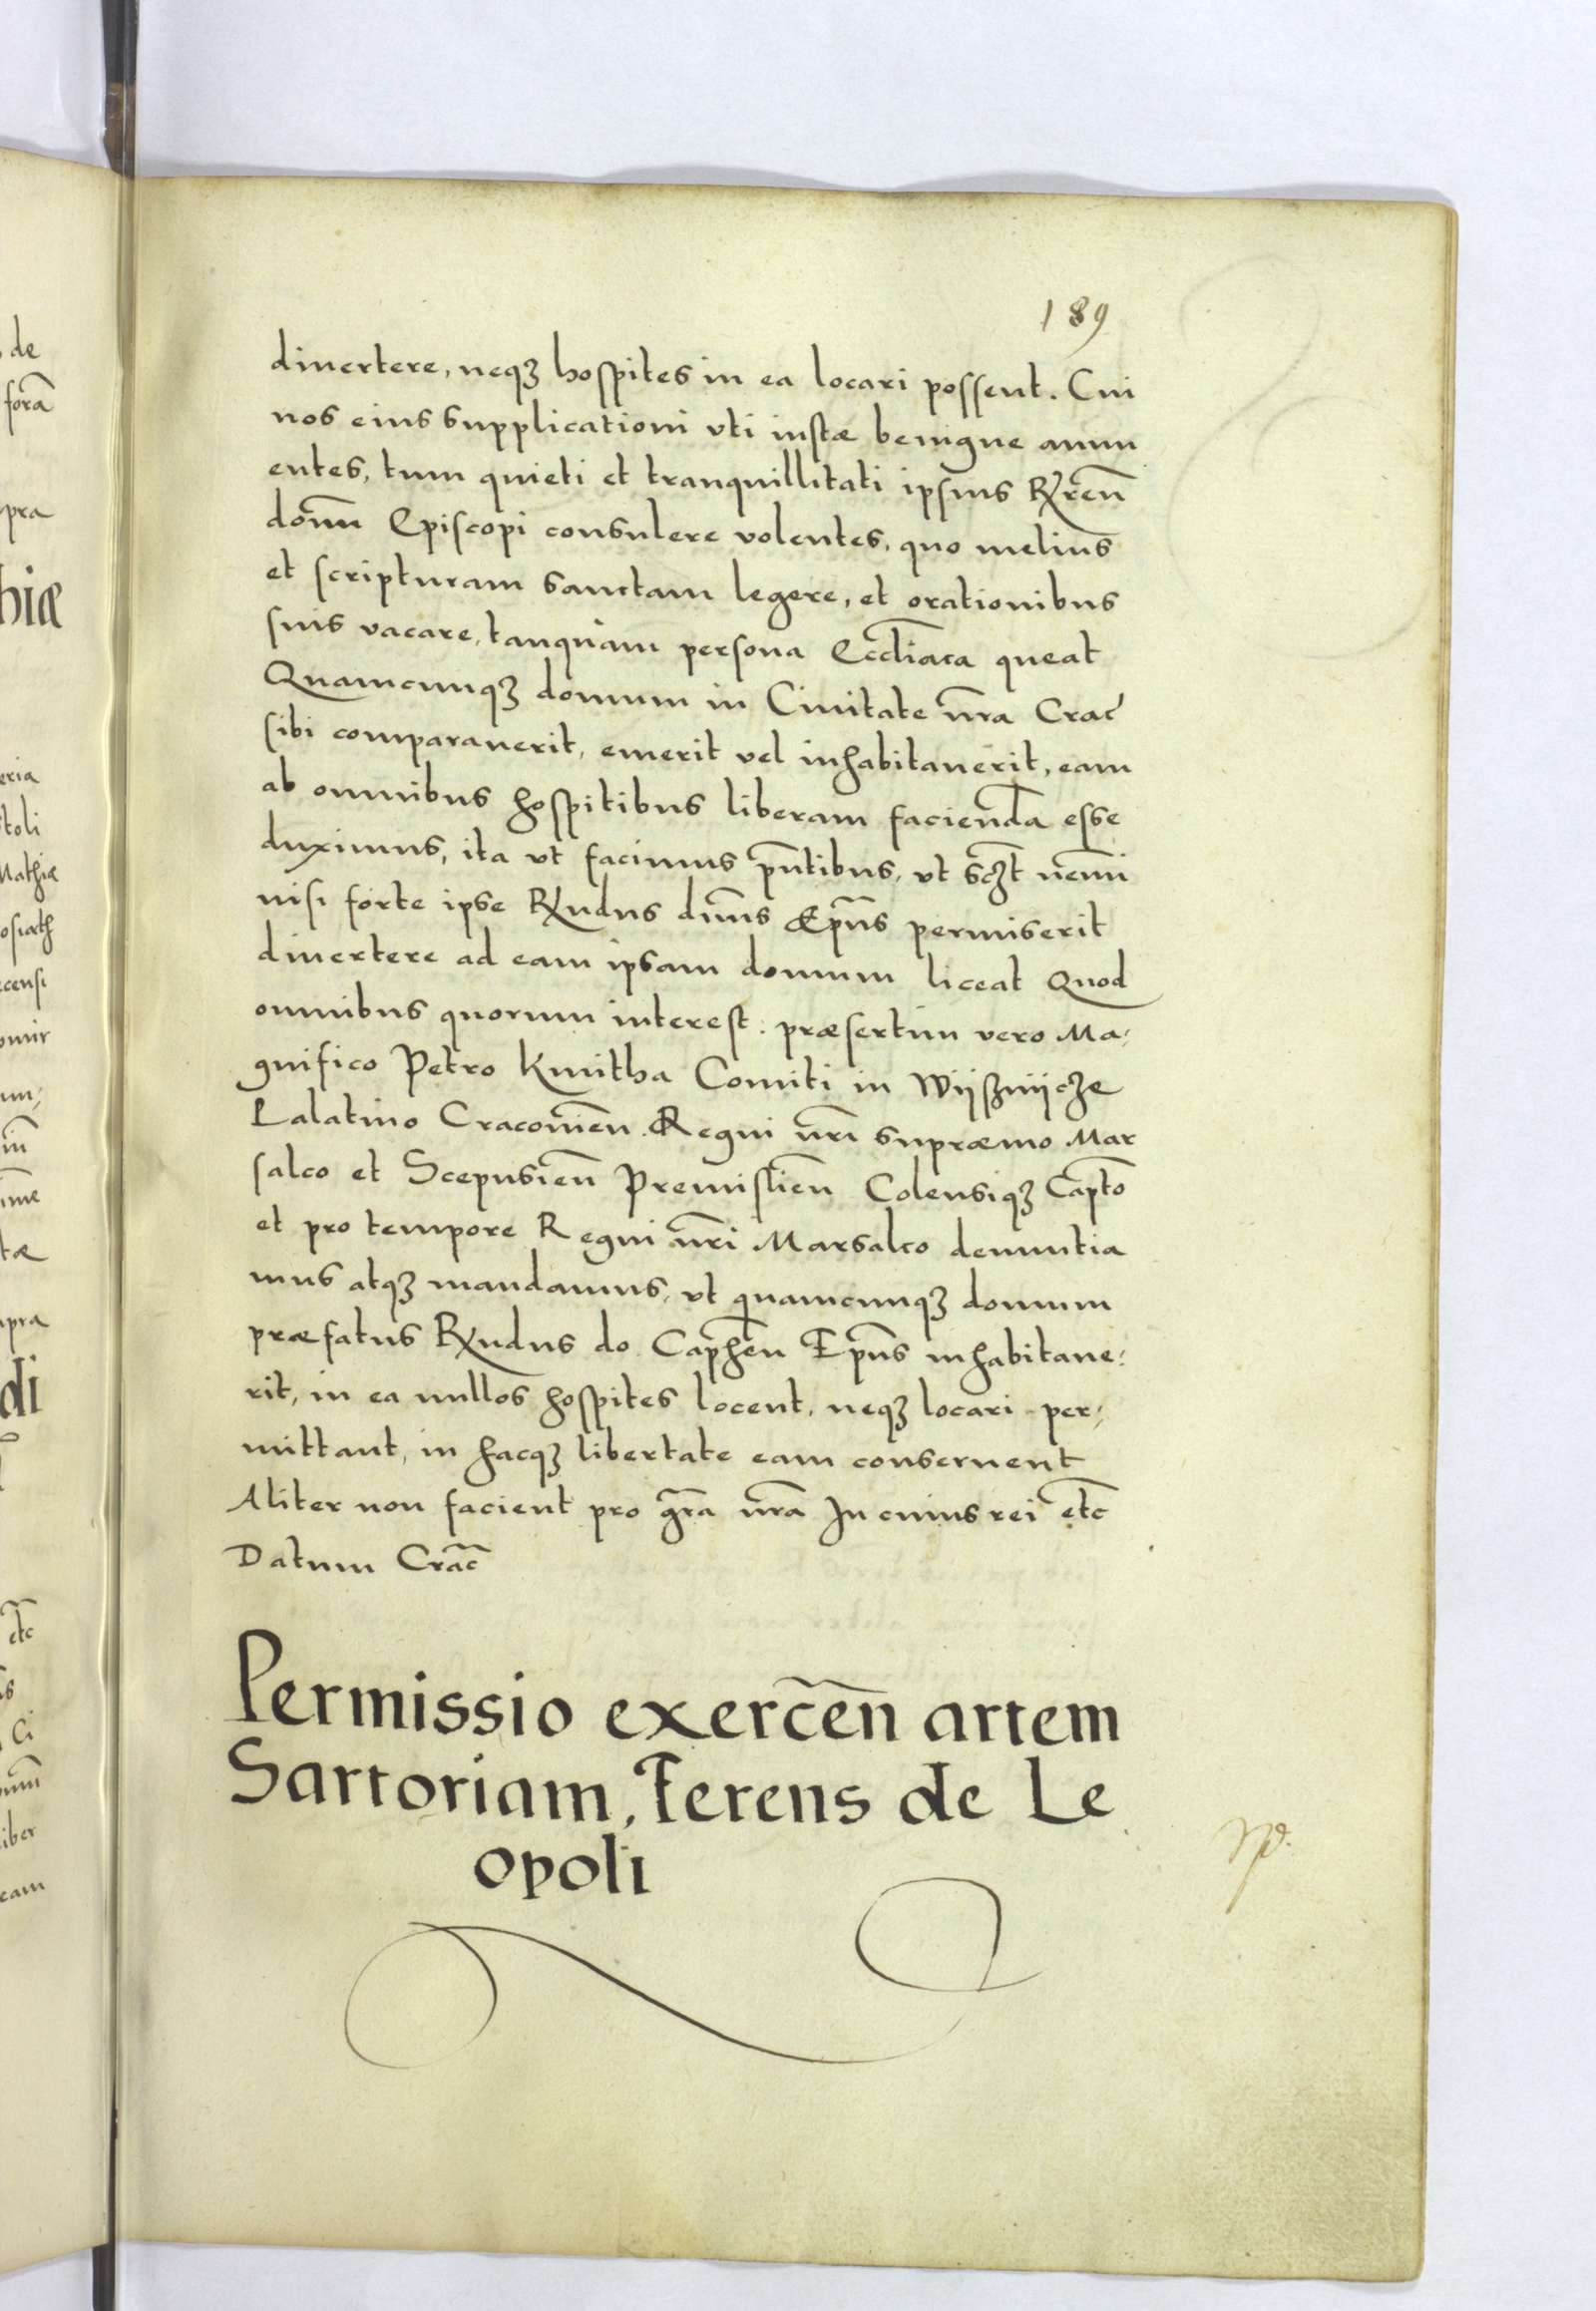 189
diuertere, neqꝫ hospites in ea locari possent. Cui
nos eius supplicationi vti iustæ benigne annu
entes, tum quieti et tranquillitati ipsius Rx̃ren̄
dom̄ Episcopi consulere volentes, quo melius
et scripturam sanctam legere, et orationibus
suis vacare, tanquam persona Eccl̄iaca queat
Quamcunqꝫ domum in Ciuitate nr̄a Crac̄
sibi comparauerit, emerit vel inhabitauerit, eam
ab omnibus hospitibus liberam faciendā esse
duximus, ita vt facimus pn̄tibus, vt scꝫt nemī
nisi forte ipse Rx̃ndus dn̄s Ep̄us permiserit
diuertere ad eam ipsam domum liceat Quod
omnibus quorum interest: præsertim vero Ma,
gnifico Petro Kmitha Comiti in Wijsznijcze
Palatino Cracouien̄. Regni nr̄i supræmo Mar
salco et Scepusien̄ Premislien̄ Colensiqꝫ Capt̄o
et pro tempore Regni nr̄i Marsalco denuntia
mus atqꝫ mandamus, vt quamcunqꝫ domum
præfatus Rx̃ndus do. Caphen̄ Ep̄us inhabitaue:
rit, in ea nullos hospites locent, neqꝫ locari per,
mittant, in hacqꝫ libertate eam conseruent
Aliter non facient pro gr̄a nr̄a In cuius rei etc̄
Datum Crac̄
Permissio exercēn̄ artem
Sartoriam, Ferens de Le
opoli